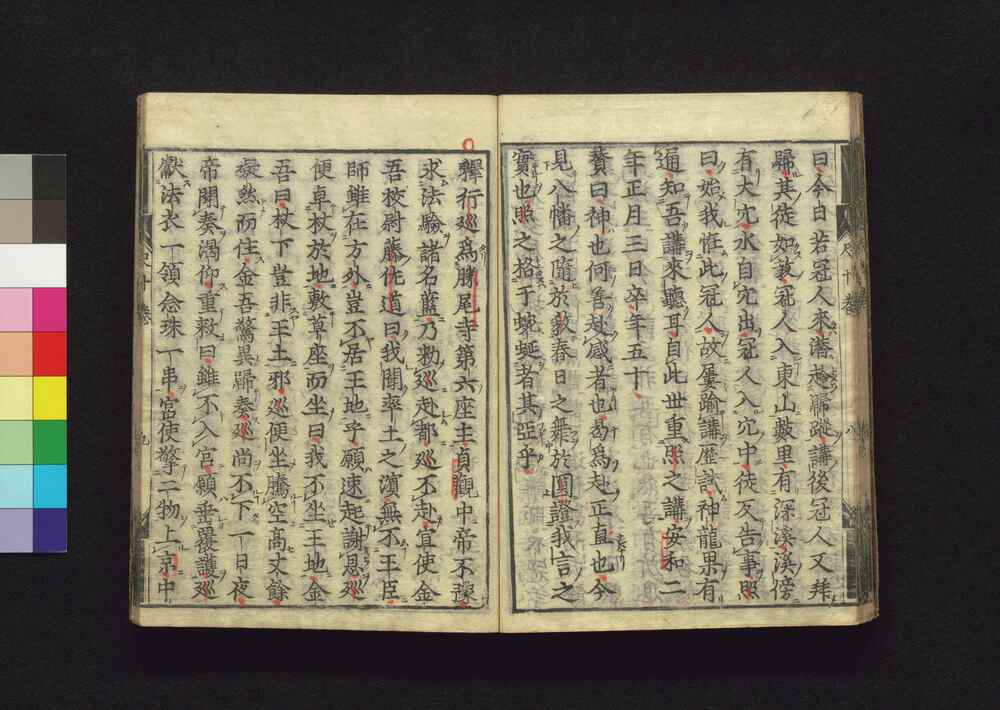 曰今日若冠人來潛起歸蹤講後冠人又拜
歸其徒如敎冠人入東山數里有深溪溪傍
有大穴水自穴出冠人入穴中徒又告事照
曰始我恠此冠人故屢踰講座試神龍果有
通知吾講來聽耳自此世重照之講安和二
年正月三日卒年五十
賛曰神也何善赴感者也曷為赴正直也今
見八幡之隨於敎春日之舞於圓證我言之
實也照之格于蜿蜒者其亞乎
釋行巡為勝尾寺第六座主貞觀中帝不豫
求法驗諸名藍乃勅巡赴都巡不赴宜使金
吾校尉藤佐道曰我聞率土之濱無不王臣
師雖在方外豈不居王地乎願速起謝恩巡
便卓杖於地敷草座而坐曰我不坐王地金
吾曰杖下豈非王土邪巡便坐騰空高丈餘
凝然而住金吾驚異歸奏巡尚不下一日夜
帝聞奏渴仰重敕曰雖不入宮願垂覆護巡
獻法衣一領念珠一串宮使擎二物上京中